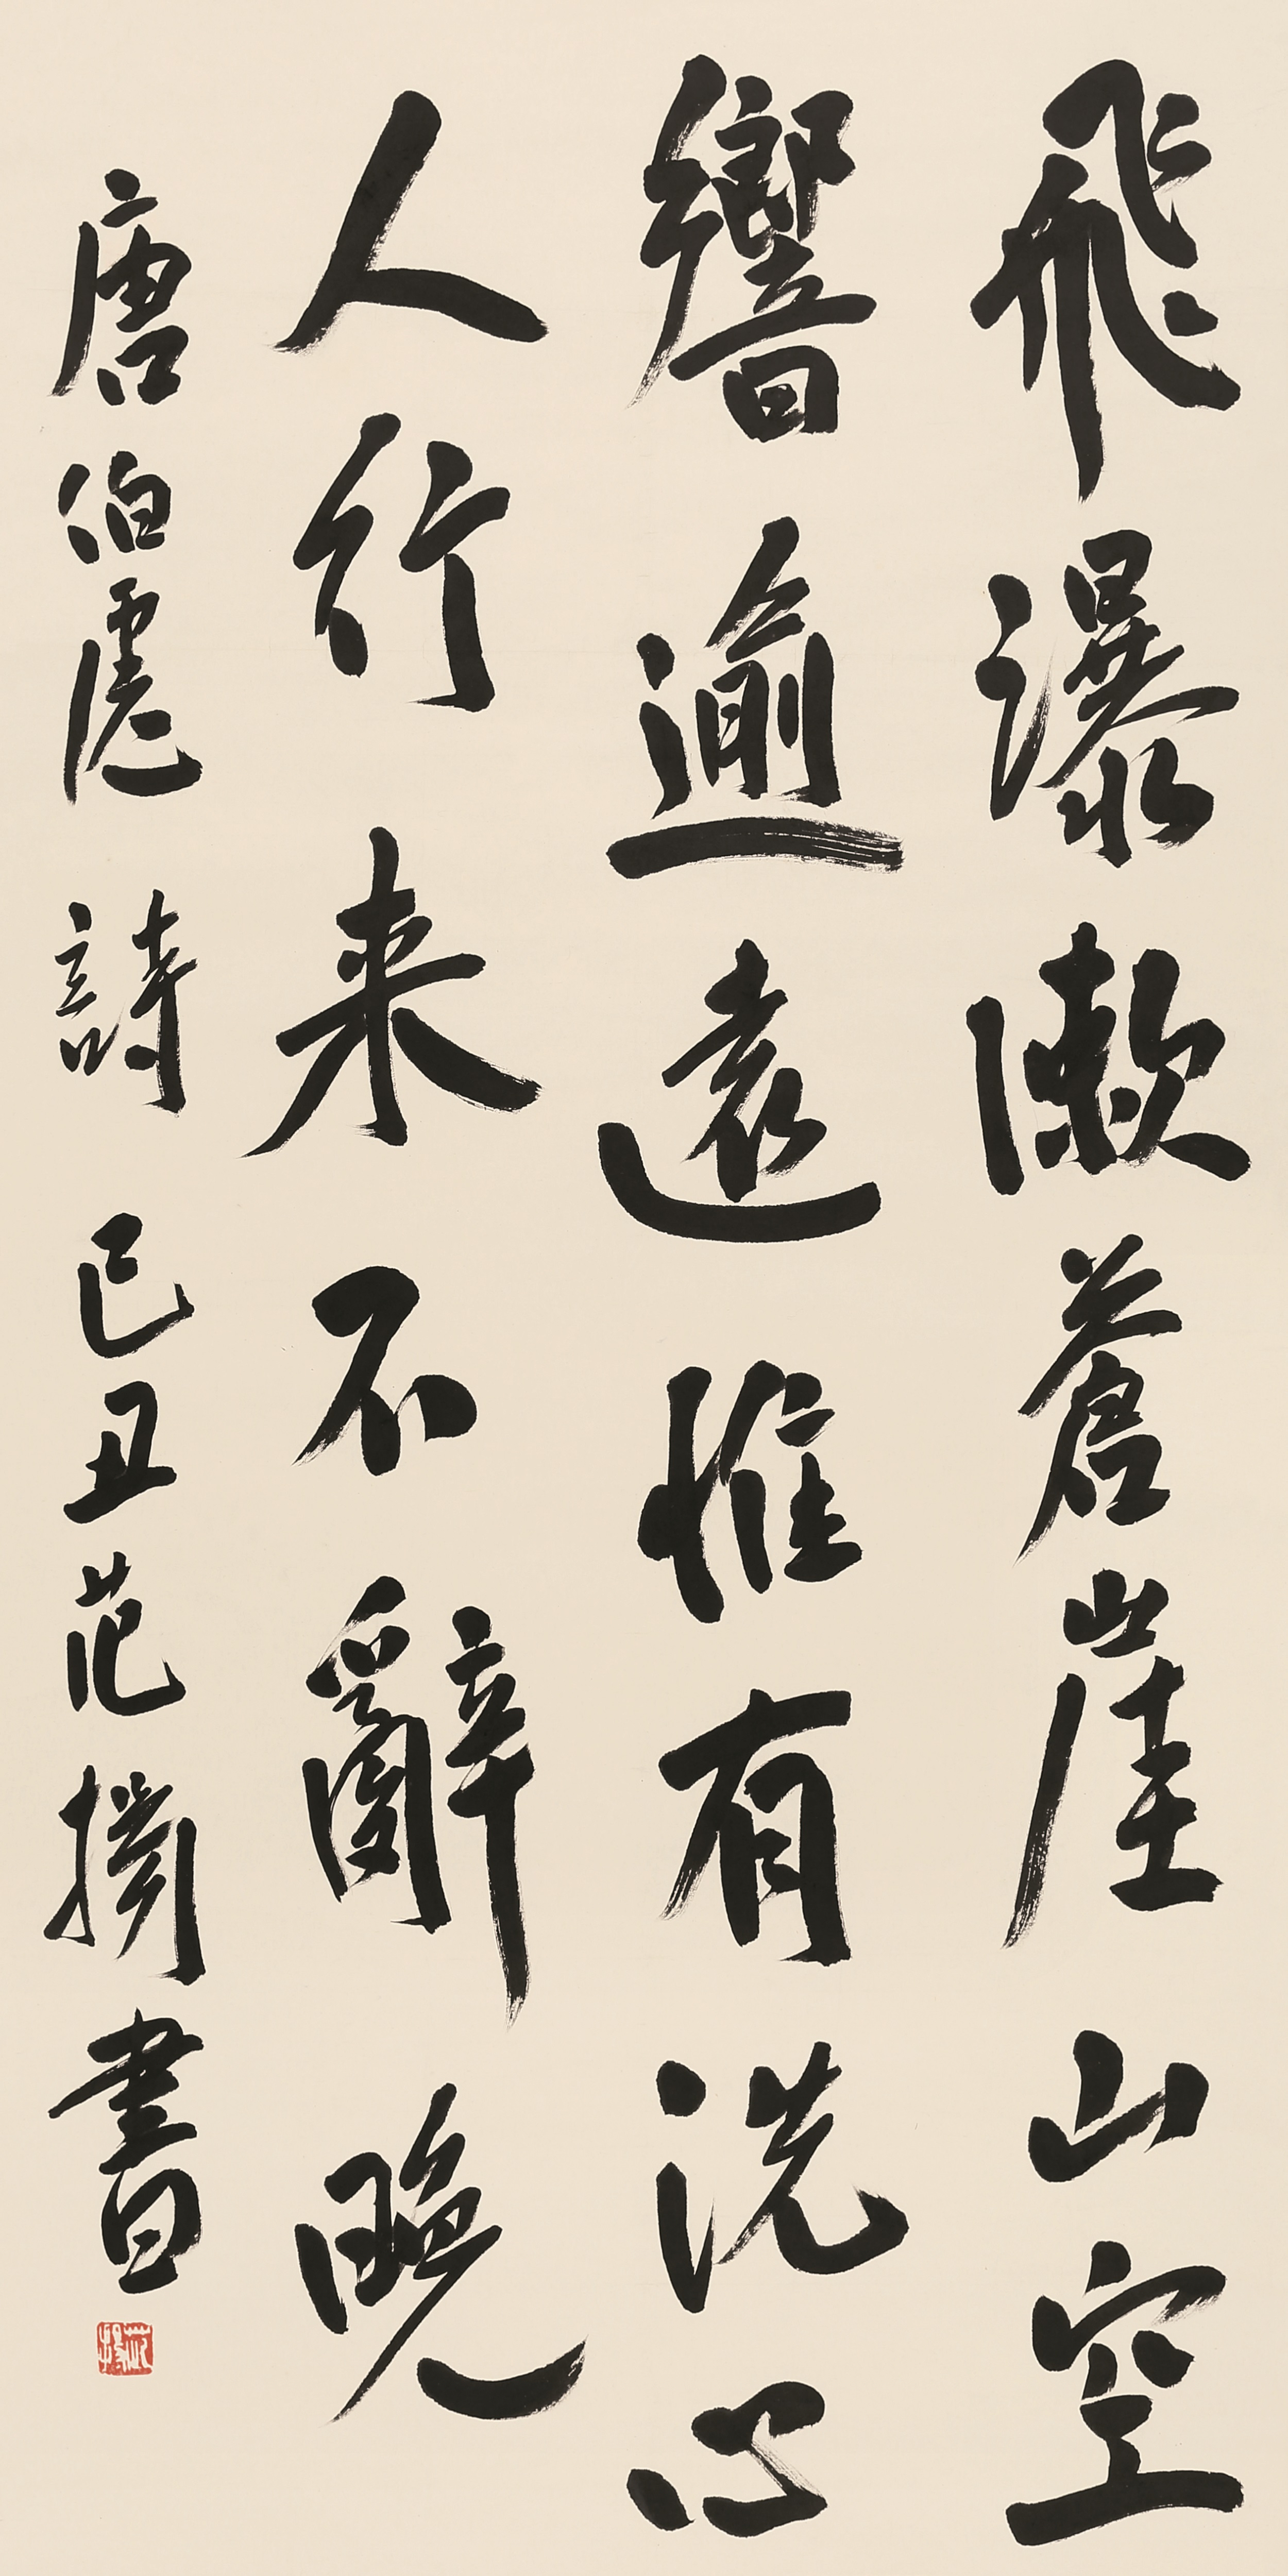 飛瀑漱蒼崖山空
響逾遠惟有洗心
人行来不辭晚
唐伯虎詩 己丑范揚書
范揚